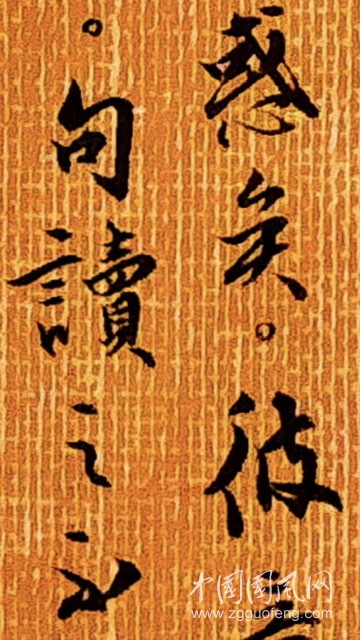 惑矣。彼
。句讀之不
中国国风网
www.zgguofeng.com